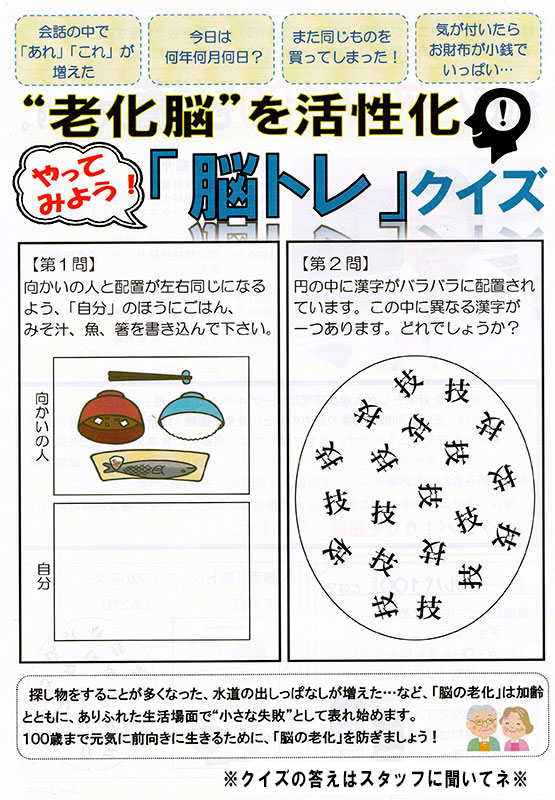 会話の中で
「あれ」「これ」が
増えた
今日は
何年何月何日？
また同じものを
買ってしまった！
気が付いたら
お財布が小銭で
いっぱい…
“老化脳”を活性化
！
やって
みよう！
「脳トレ」クイズ
【第１問】
向かいの人と配置が左右同じになる
よう、「自分」のほうにごはん、
みそ汁、魚、箸を書き込んで下さい。
向かいの人
自分
【第２問】
円の中に漢字がバラバラに配置され
ています。この中に異なる漢字が
一つあります。どれでしょうか？
技 技
技 技
技 技
技
技 技
技 技
技
技 技
技 技
技
技 技
探し物をすることが多くなった、水道の出しっぱなしが増えた…など、「脳の老化」は加齢
とともに、ありふれた生活場面で“小さな失敗”として表れ始めます。
100歳まで元気に前向きに生きるために、「脳の老化」を防ぎましょう！
※クイズの答えはスタッフに聞いてネ※